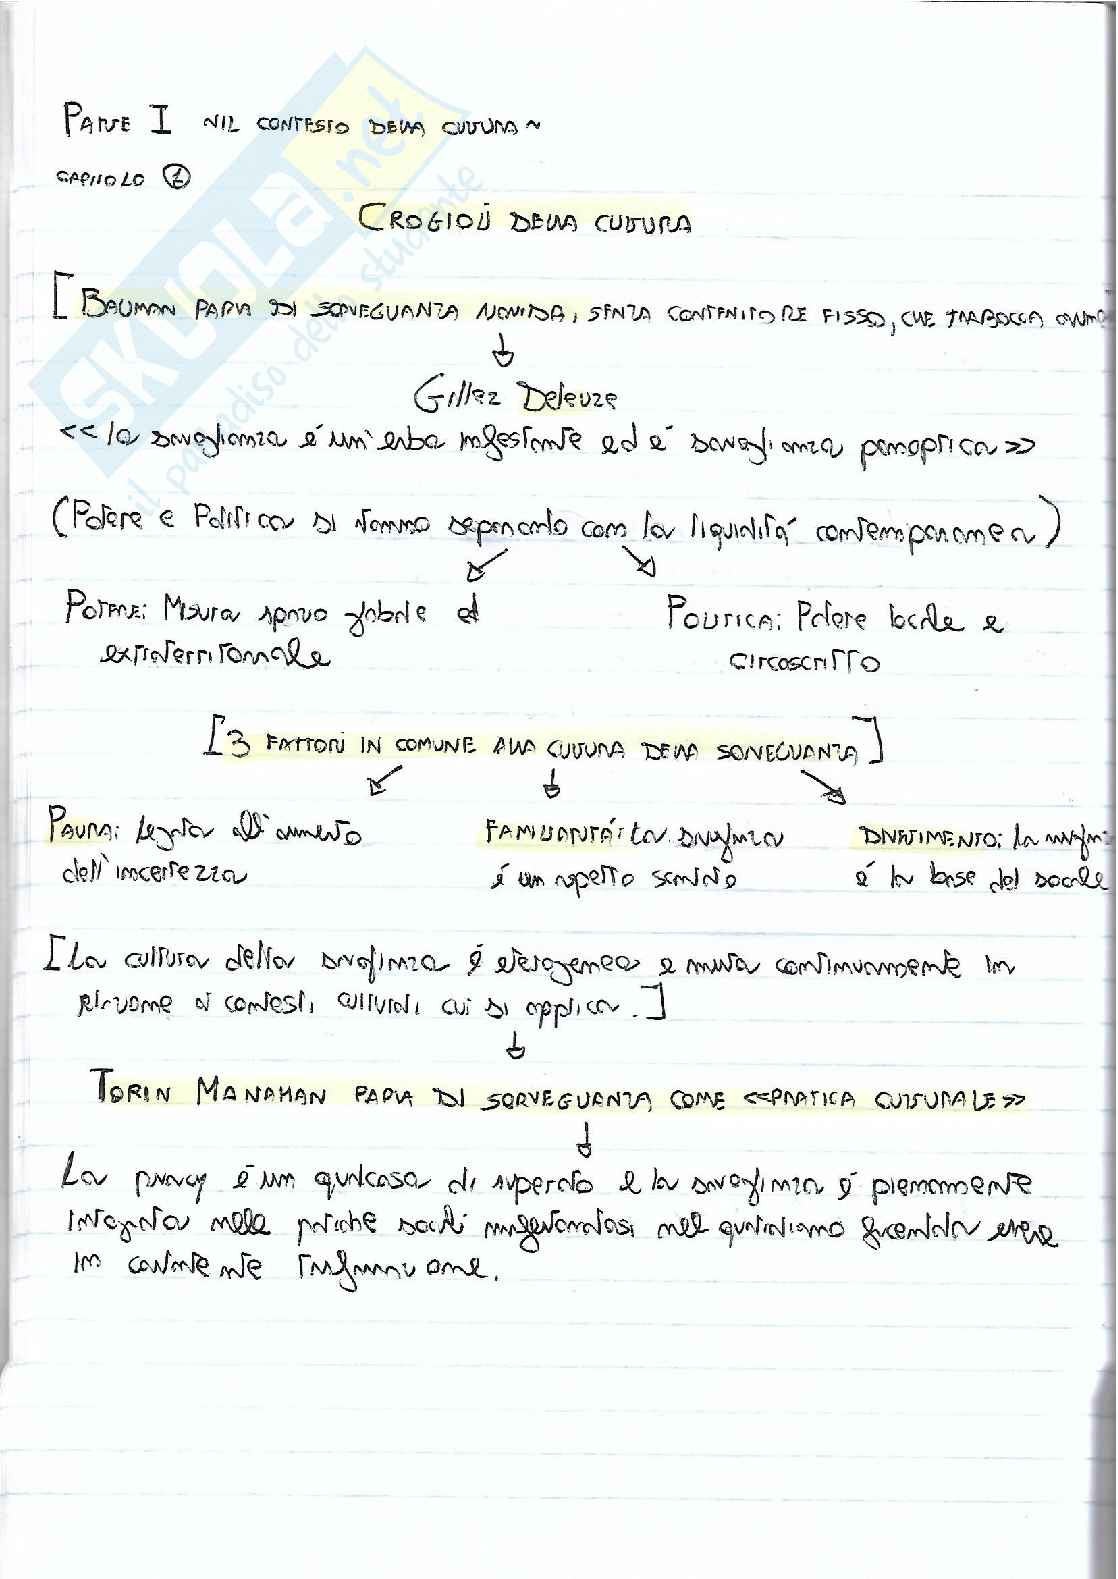 PARTE I NEL CONTESTO DELLA CULTURA ~
CAPITOLO 1
CROGIOLI DELLA CULTURA
[BAUMAN PARLA DI SORVEGLIANZA LIQUIDA, SENZA CONTENITORE FISSO, CHE TRABOCCA
Gillez Deleuze
<<la sorveglianza é un'erba infestante ed é sorveglianza panoptica>>
(Potere e Politica si stanno separando con la liquiditá contemporanea)
POTERE: Misura spazio globale ed
extraterritoriale
POLITICA: Potere locale e
circoscritto
[3 FATTORI IN COMUNE ALLA CULTURA DELLA SORVEGLIANZA]
PAURA: Legata all'aumento
dell'incertezza
FAMILIARITÁ: La sorveglianza
é un aspetto scontato
DIVERTIMENTO: La
é la base del sociale
[La cultura della sorveglianza é eterogenea e muta continuamente in
relazione ai contesti culturali cui si applica.]
TORIN MANAHAN PARLA DI SORVEGLIANZA COME <<PRATICA CULTURALE>>
La privacy é un qualcosa di superato e la sorveglianza é pienamente
integrata nelle pratiche sociali manifestandosi nel quotidiano facendola essere
in costante trasformazione.
SKUOLA.net
il paradiso dello studente